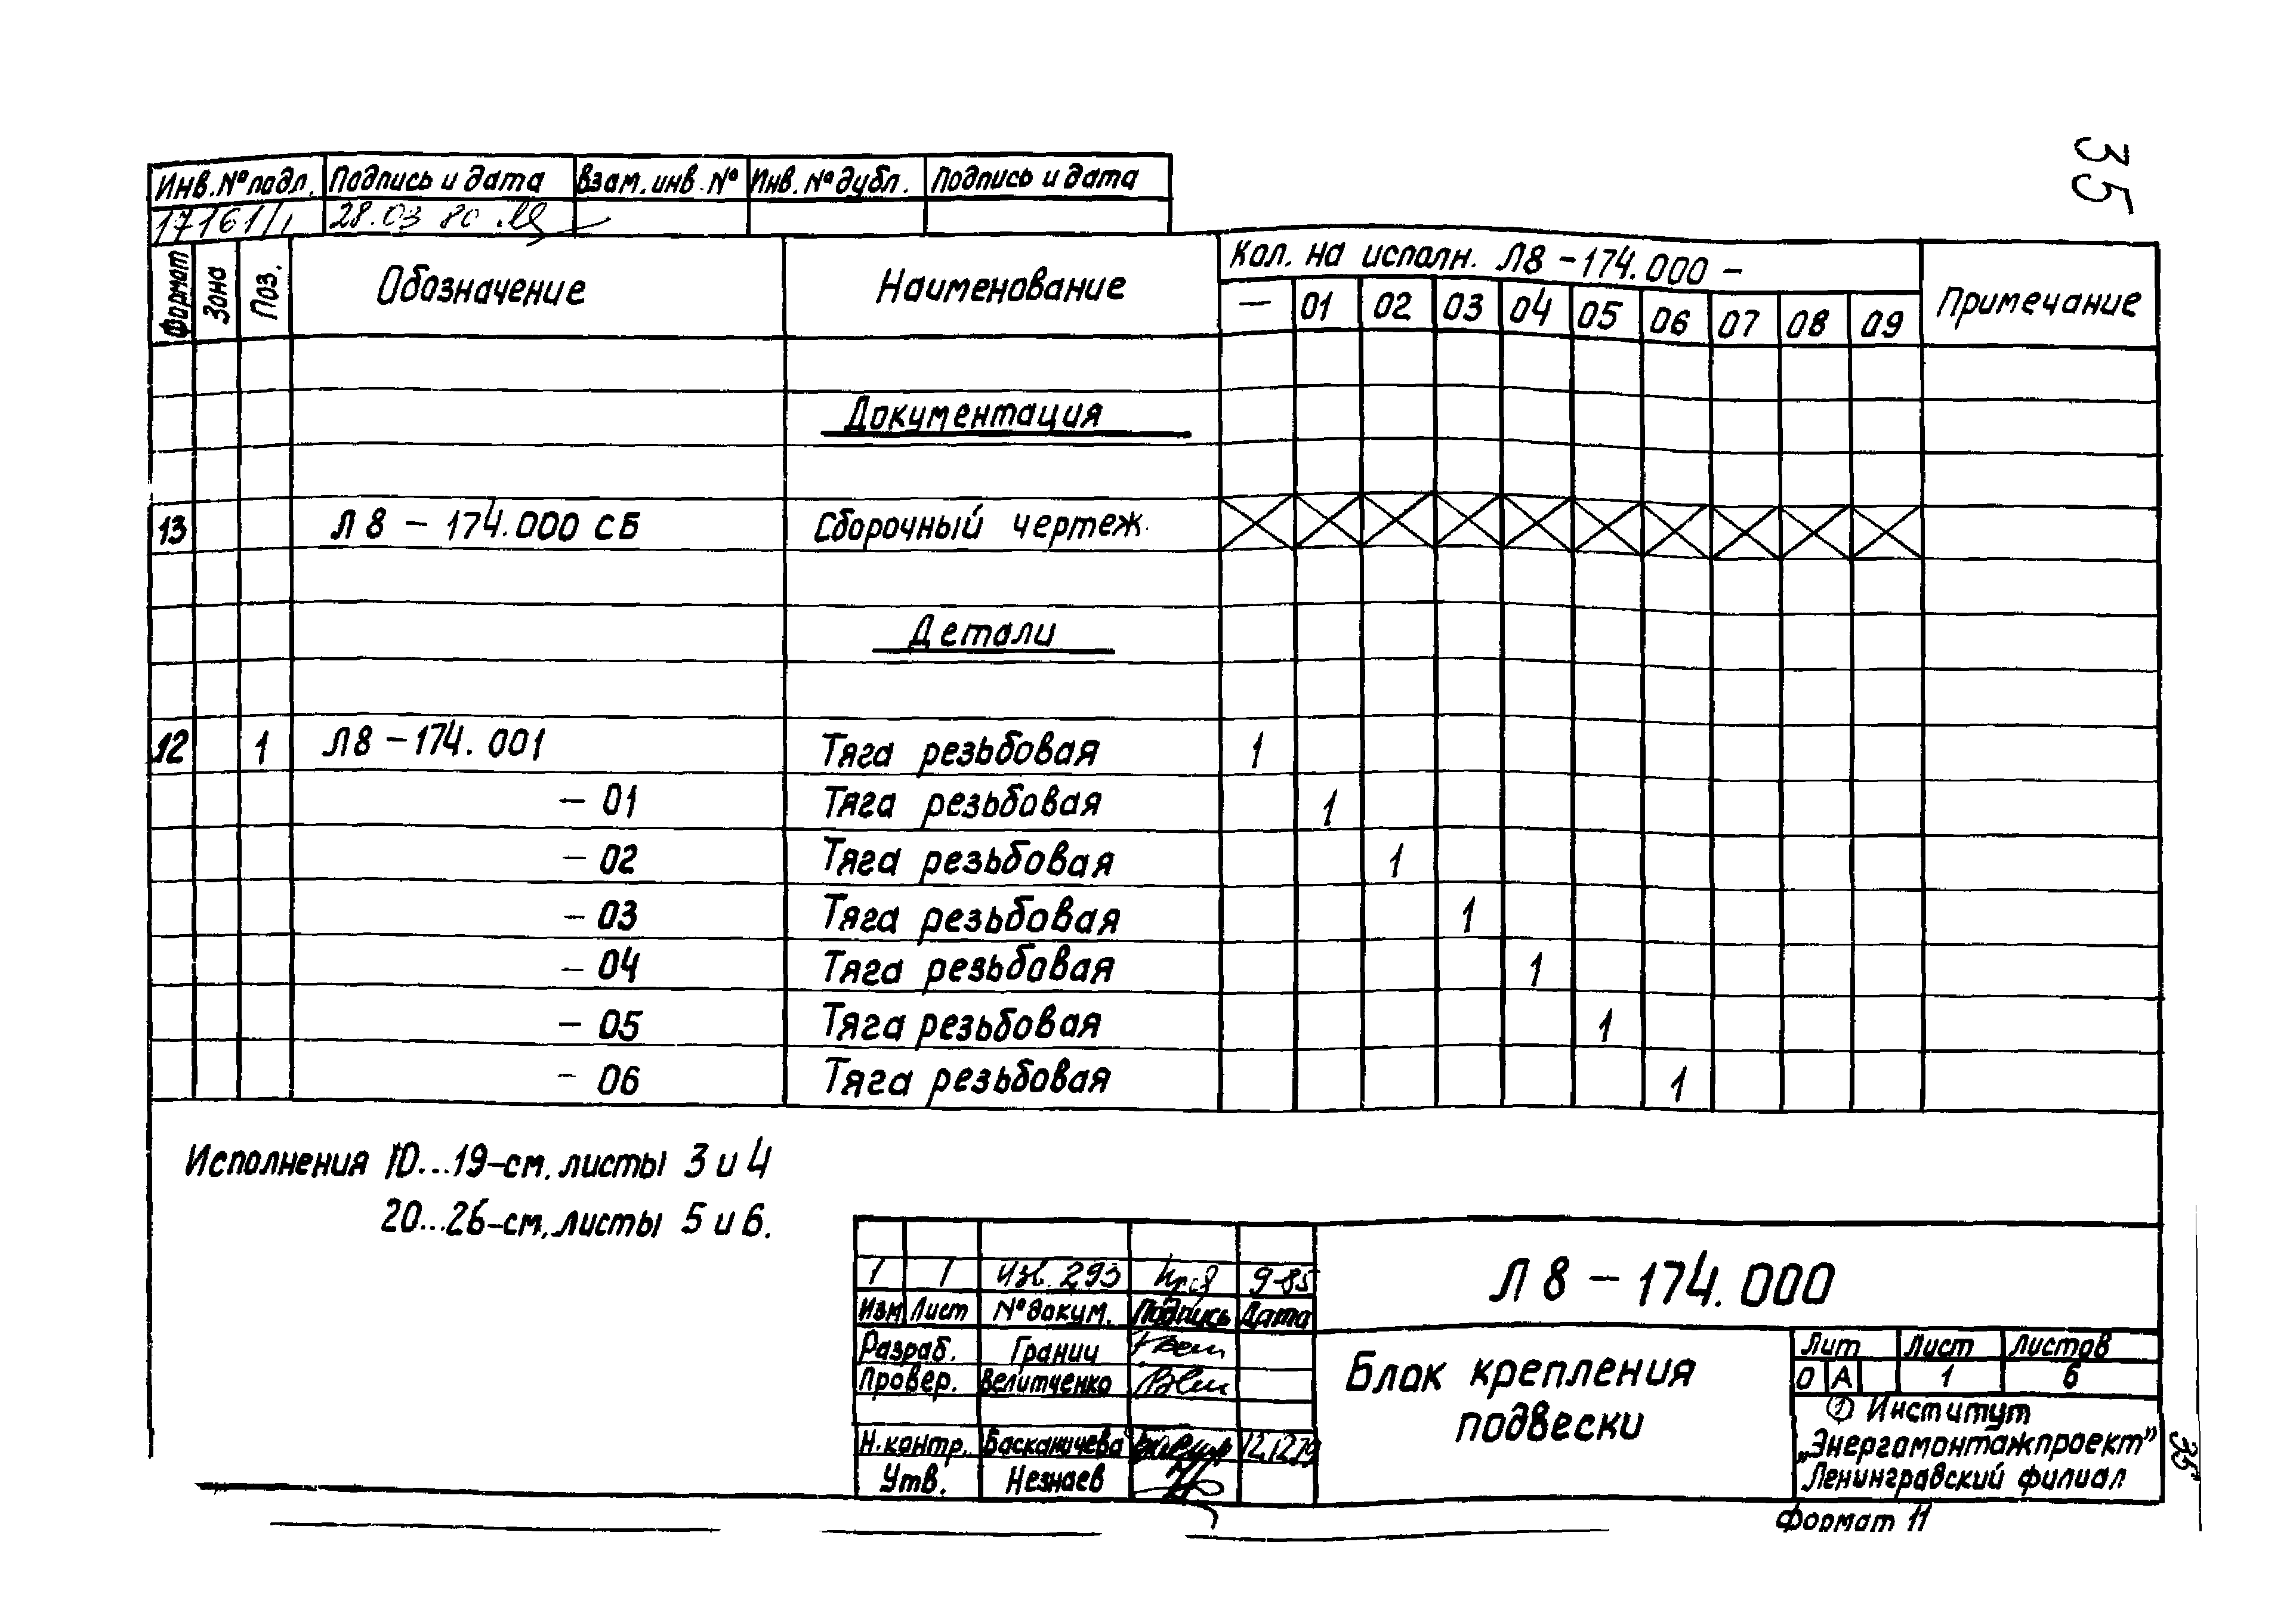 35
Инв.№ подл. Подпись и дата Взам. инв. № Инв. № дубл. Подпись и дата
17161/1 28.03 80
Формат Зона Поз. Обозначение Наименование Кол. на исполн. Л8-174.000 - Примечание
— 01 02 03 04 05 06 07 08 09
Документация
13 Л8-174.000 СБ Сборочный чертеж
Детали
12 1 Л8-174.001 Тяга резьбовая 1
- 01 Тяга резьбовая 1
- 02 Тяга резьбовая 1
- 03 Тяга резьбовая 1
- 04 Тяга резьбовая 1
- 05 Тяга резьбовая 1
- 06 Тяга резьбовая 1
Исполнения 10...19-см. листы 3 и 4
20...26-см. листы 5 и 6.
1 1 Изв. 293 9-85
Изм Лист № докум. Подпись Дата
Разраб. Гранич
Провер. Велитченко
Н.контр. Басканичева 12.12.79
Утв. Незнаев
Л8-174.000
Блок крепления
подвески
Лит Лист Листов
О А 1 6
① Институт
„Энергомонтажпроект”
Ленинградский филиал
Формат 11
35